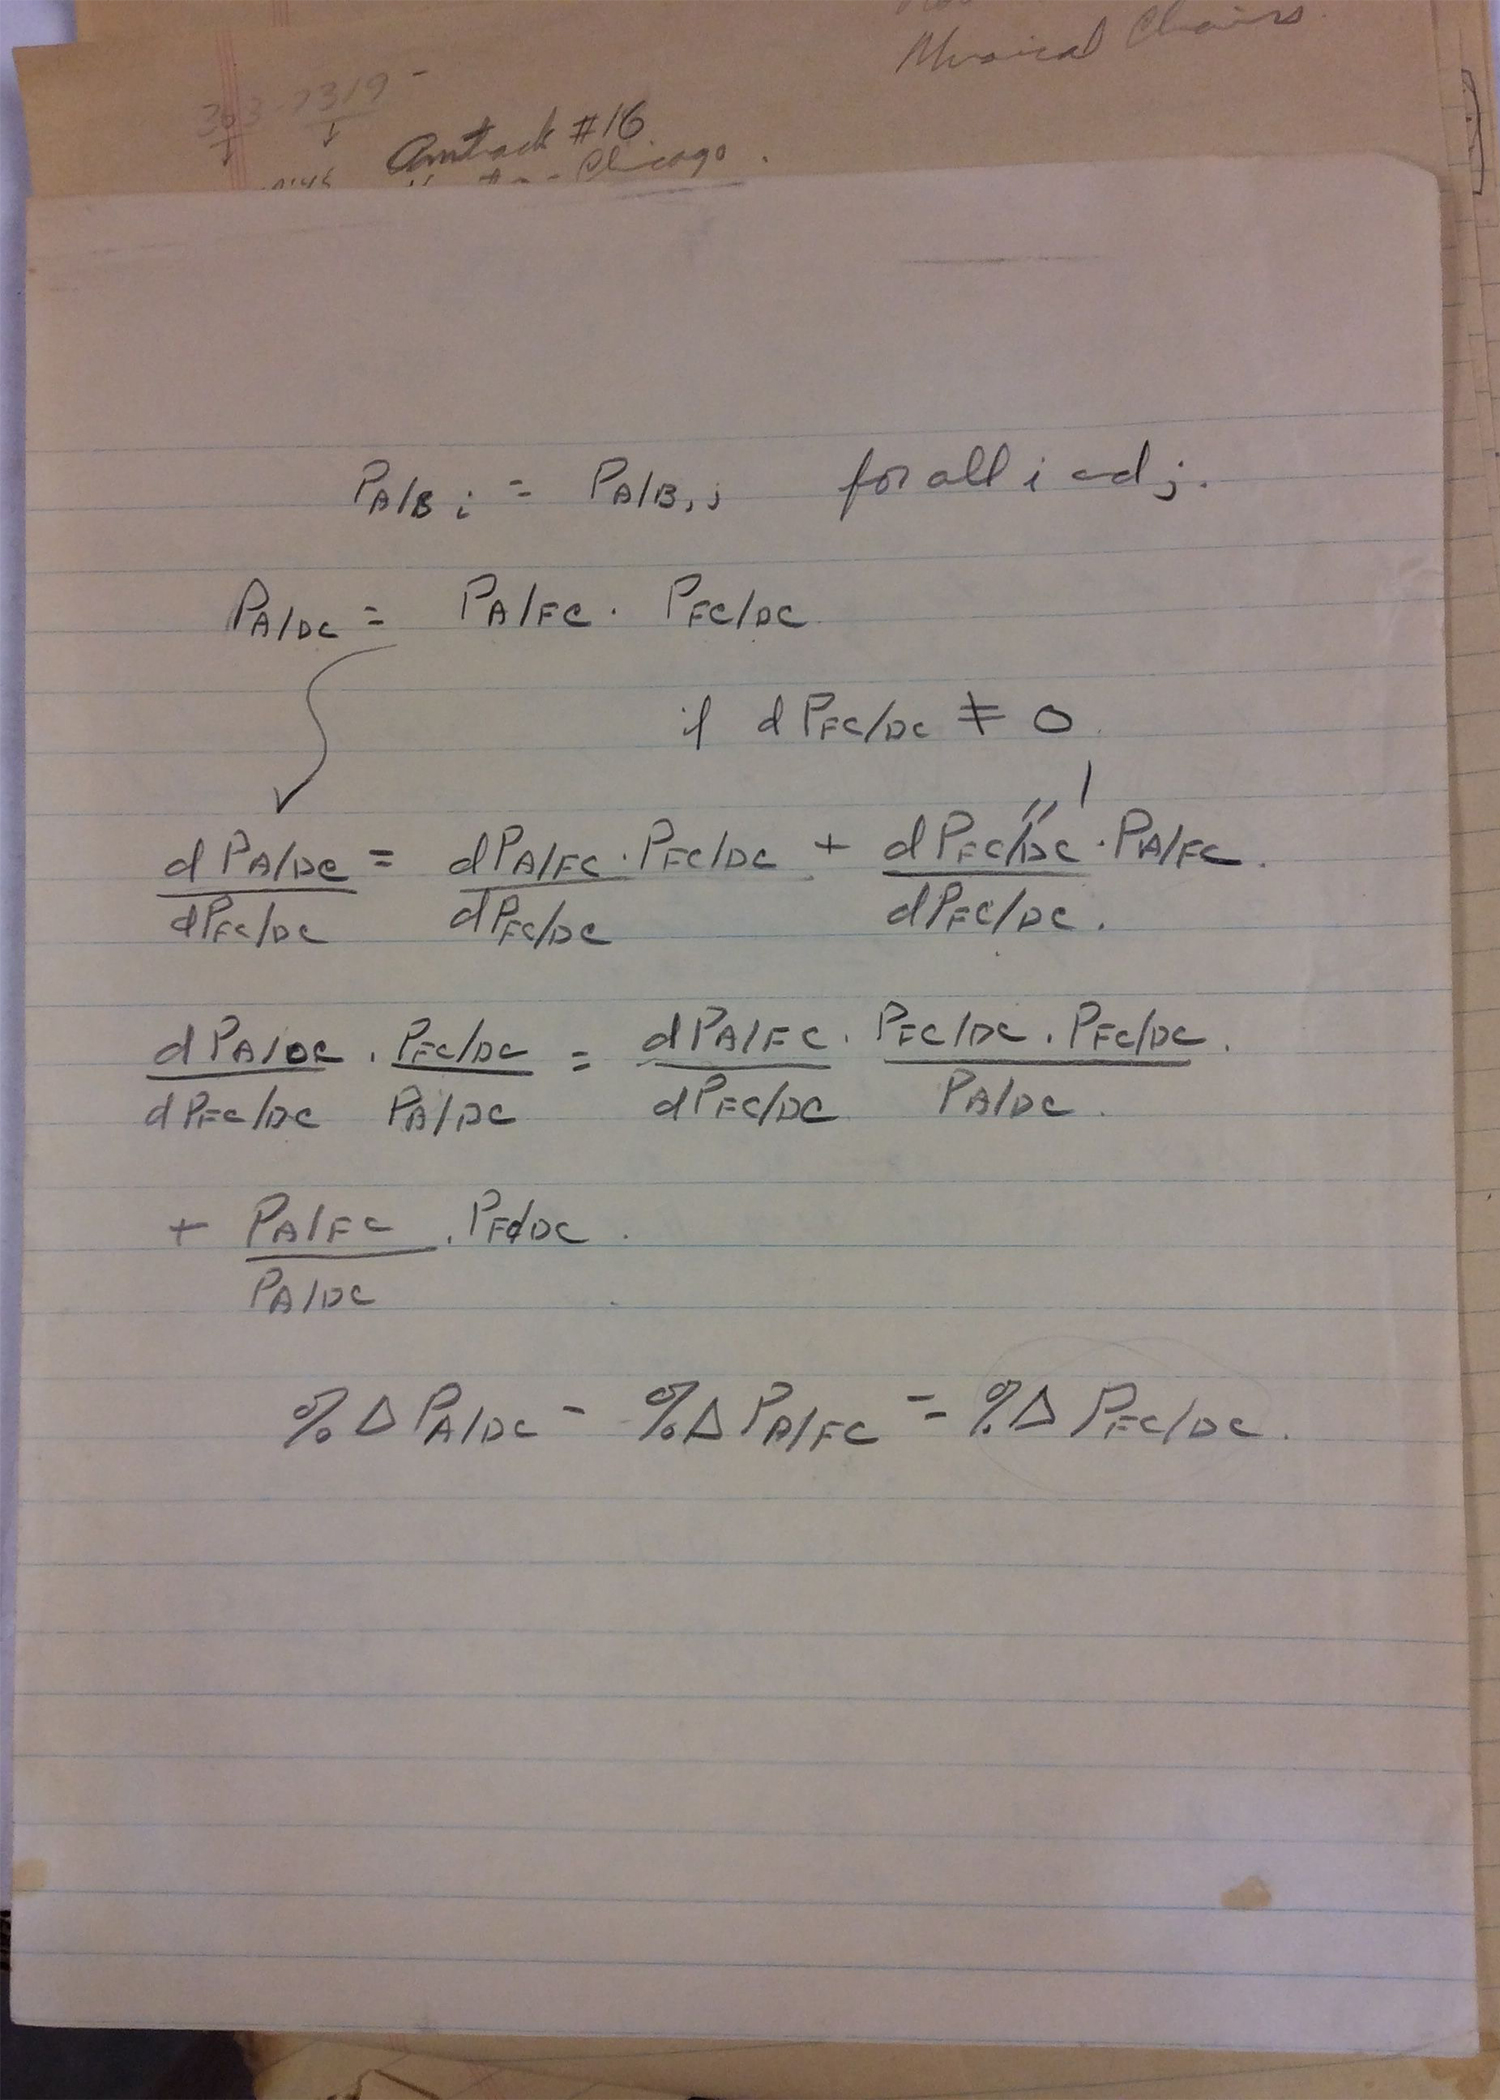 Musical Chairs
363-7319-
Amtrack #16
Chicago.
P_A/B i = P_A/B, j for all i and j.
P_A/DC = P_A/FC · P_FC/DC
if dP_FC/DC ≠ 0
1
dP_A/DC / dP_FC/DC = dP_A/FC / dP_FC/DC · P_FC/DC + dP_FC/DC / dP_FC/DC · P_A/FC.
dP_A/DC / dP_FC/DC · P_FC/DC / P_A/DC = dP_A/FC / dP_FC/DC · P_FC/DC · P_FC/DC / P_A/DC.
+ P_A/FC / P_A/DC · P_FC/DC.
%Δ P_A/DC - %Δ P_A/FC = %Δ P_FC/DC.